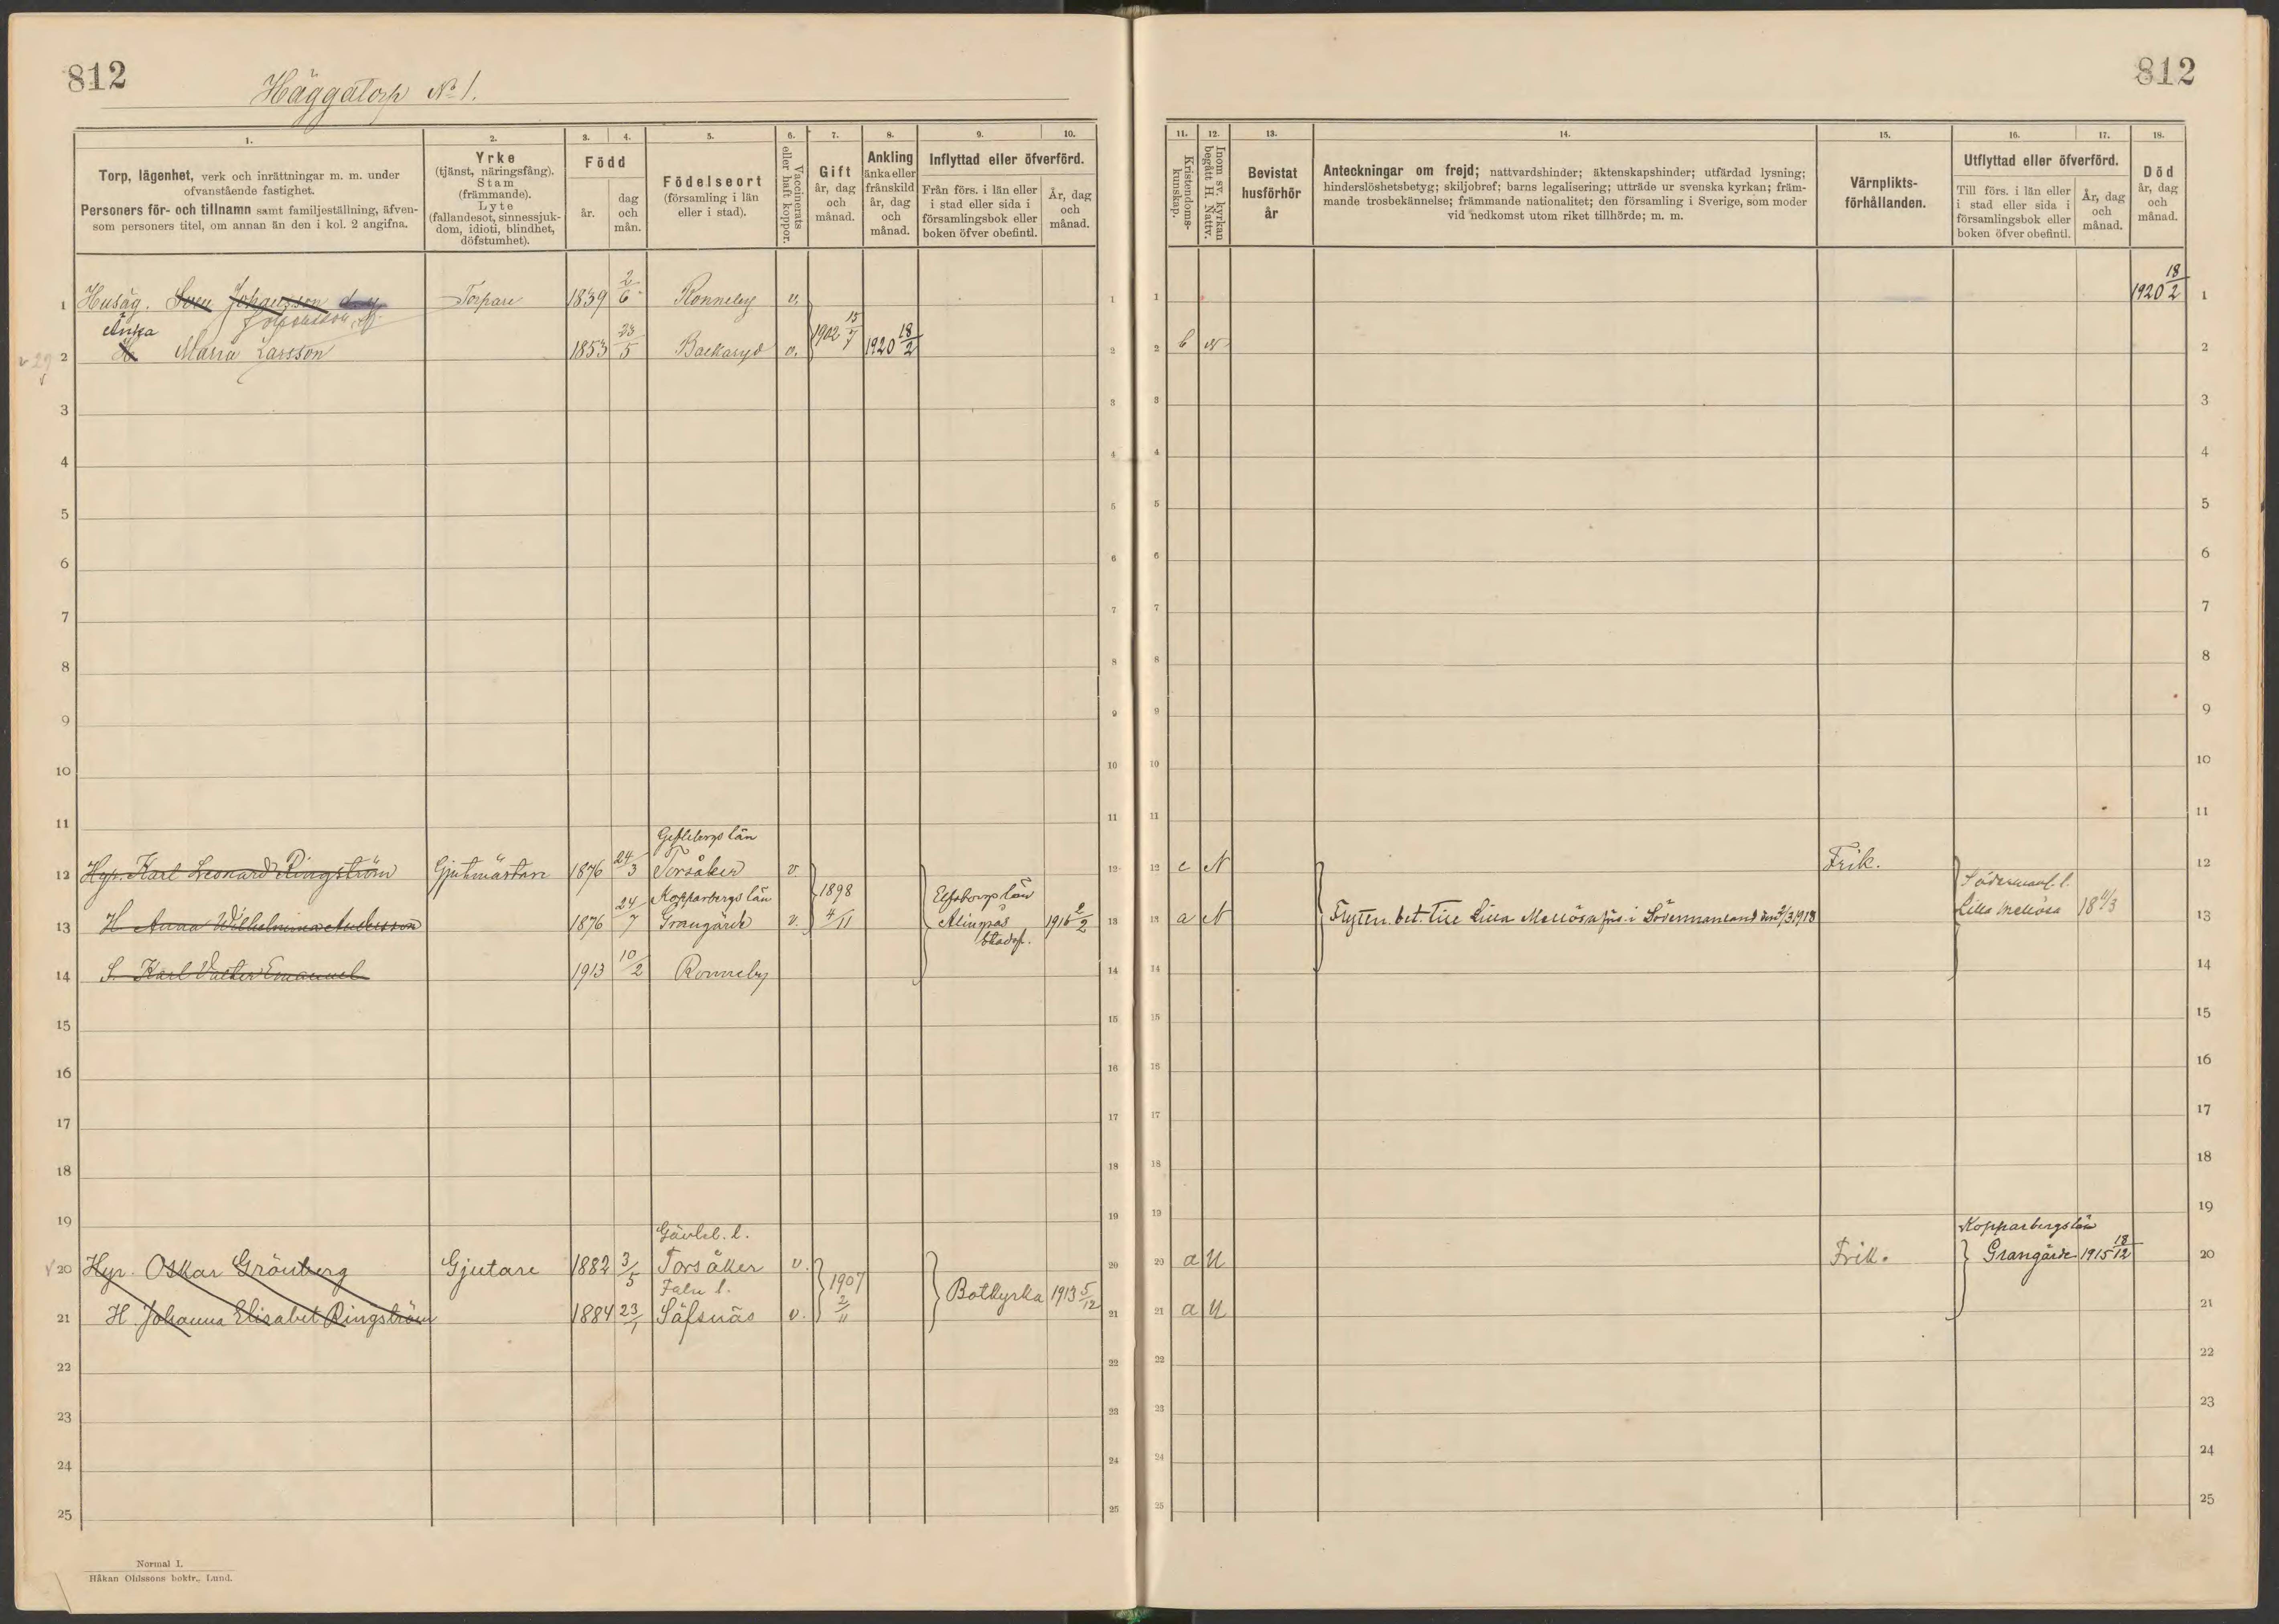 812
Häggatorp No 1.
1.
Torp, lägenhet, verk och inrättningar m. m. under
ofvanstående fastighet.
Personers för- och tillnamn samt familjeställning, äfven-
som personers titel, om annan än den i kol. 2 angifna.
2.
Yrke
(tjänst, näringsfång).
Stam
(främmande).
Lyte
(fallandesot, sinnessjuk-
dom, idioti, blindhet,
döfstumhet).
3. 4.
Född
år.
dag
och
mån.
5.
Födelseort
(församling i län
eller i stad).
6.
Vaccinerats
eller haft koppor.
7.
Gift
år, dag
och
månad.
8.
Ankling
änka eller
frånskild
år, dag
och
månad.
9. 10.
Inflyttad eller öfverförd.
Från förs. i län eller
i stad eller sida i
församlingsbok eller
boken öfver obefintl.
År, dag
och
månad.
1 Husäg. Sven Johansson Torpare 1839 2/6 Ronneby v. 1
Änka 1902 15/7
2 H Maria Larsson 1853 23/5 Backaryd v. 1920 18/2 2
3 3
4 4
5 5
6 6
7 7
8 8
9 9
10 10
11 11
Gefleborgs län
12 Hyr. Karl Leonard Ringström Gjutmästare 1876 24/3 Torsåker v. 12
Kopparbergs län 1898 Elfsborgs län
13 H Anna Wilhelmina Andersson 1876 24/7 Grangärde v. 4/11 Alingsås 1916 2/2 13
stadsf.
14 S. Karl Valter Emanuel 1913 10/2 Ronneby 14
15 15
16 16
17 17
18 18
19 19
Gävleb. l.
20 Hyr. Oskar Grönberg Gjutare 1882 3/5 Torsåker v. 20
Falu l. 1907 Botkyrka 1913 5/12
21 H. Johanna Elisabet Ringström 1884 23/1 Säfsnäs v. 2/11 21
22 22
23 23
24 24
25 25
Normal 1.
Håkan Ohlssons boktr., Lund.
812
11.
Kristendoms-
kunskap.
12.
Inom sv. kyrkan
begått H. Nattv.
13.
Bevistat
husförhör
år
14.
Anteckningar om frejd; nattvardshinder; äktenskapshinder; utfärdad lysning;
hinderslöshetsbetyg; skiljobref; barns legalisering; utträde ur svenska kyrkan; främ-
mande trosbekännelse; främmande nationalitet; den församling i Sverige, som moder
vid nedkomst utom riket tillhörde; m. m.
15.
Värnplikts-
förhållanden.
16. 17.
Utflyttad eller öfverförd.
Till förs. i län eller
i stad eller sida i
församlingsbok eller
boken öfver obefintl.
År, dag
och
månad.
18.
Död
år, dag
och
månad.
1 1920 18/2 1
2 b N 2
3 3
4 4
5 5
6 6
7 7
8 8
9 9
10 10
11 11
12 c N Frik. 12
Södermanl. l.
13 a N Flyttn. bet. till Lilla Mellösa förs. i Södermanland den 5/3 1918 Lilla Mellösa 18 11/3 13
14 14
15 15
16 16
17 17
18 18
19 19
Kopparbergs län
20 a N Frik. Grangärde 1915 18/12 20
21 a N 21
22 22
23 23
24 24
25 25